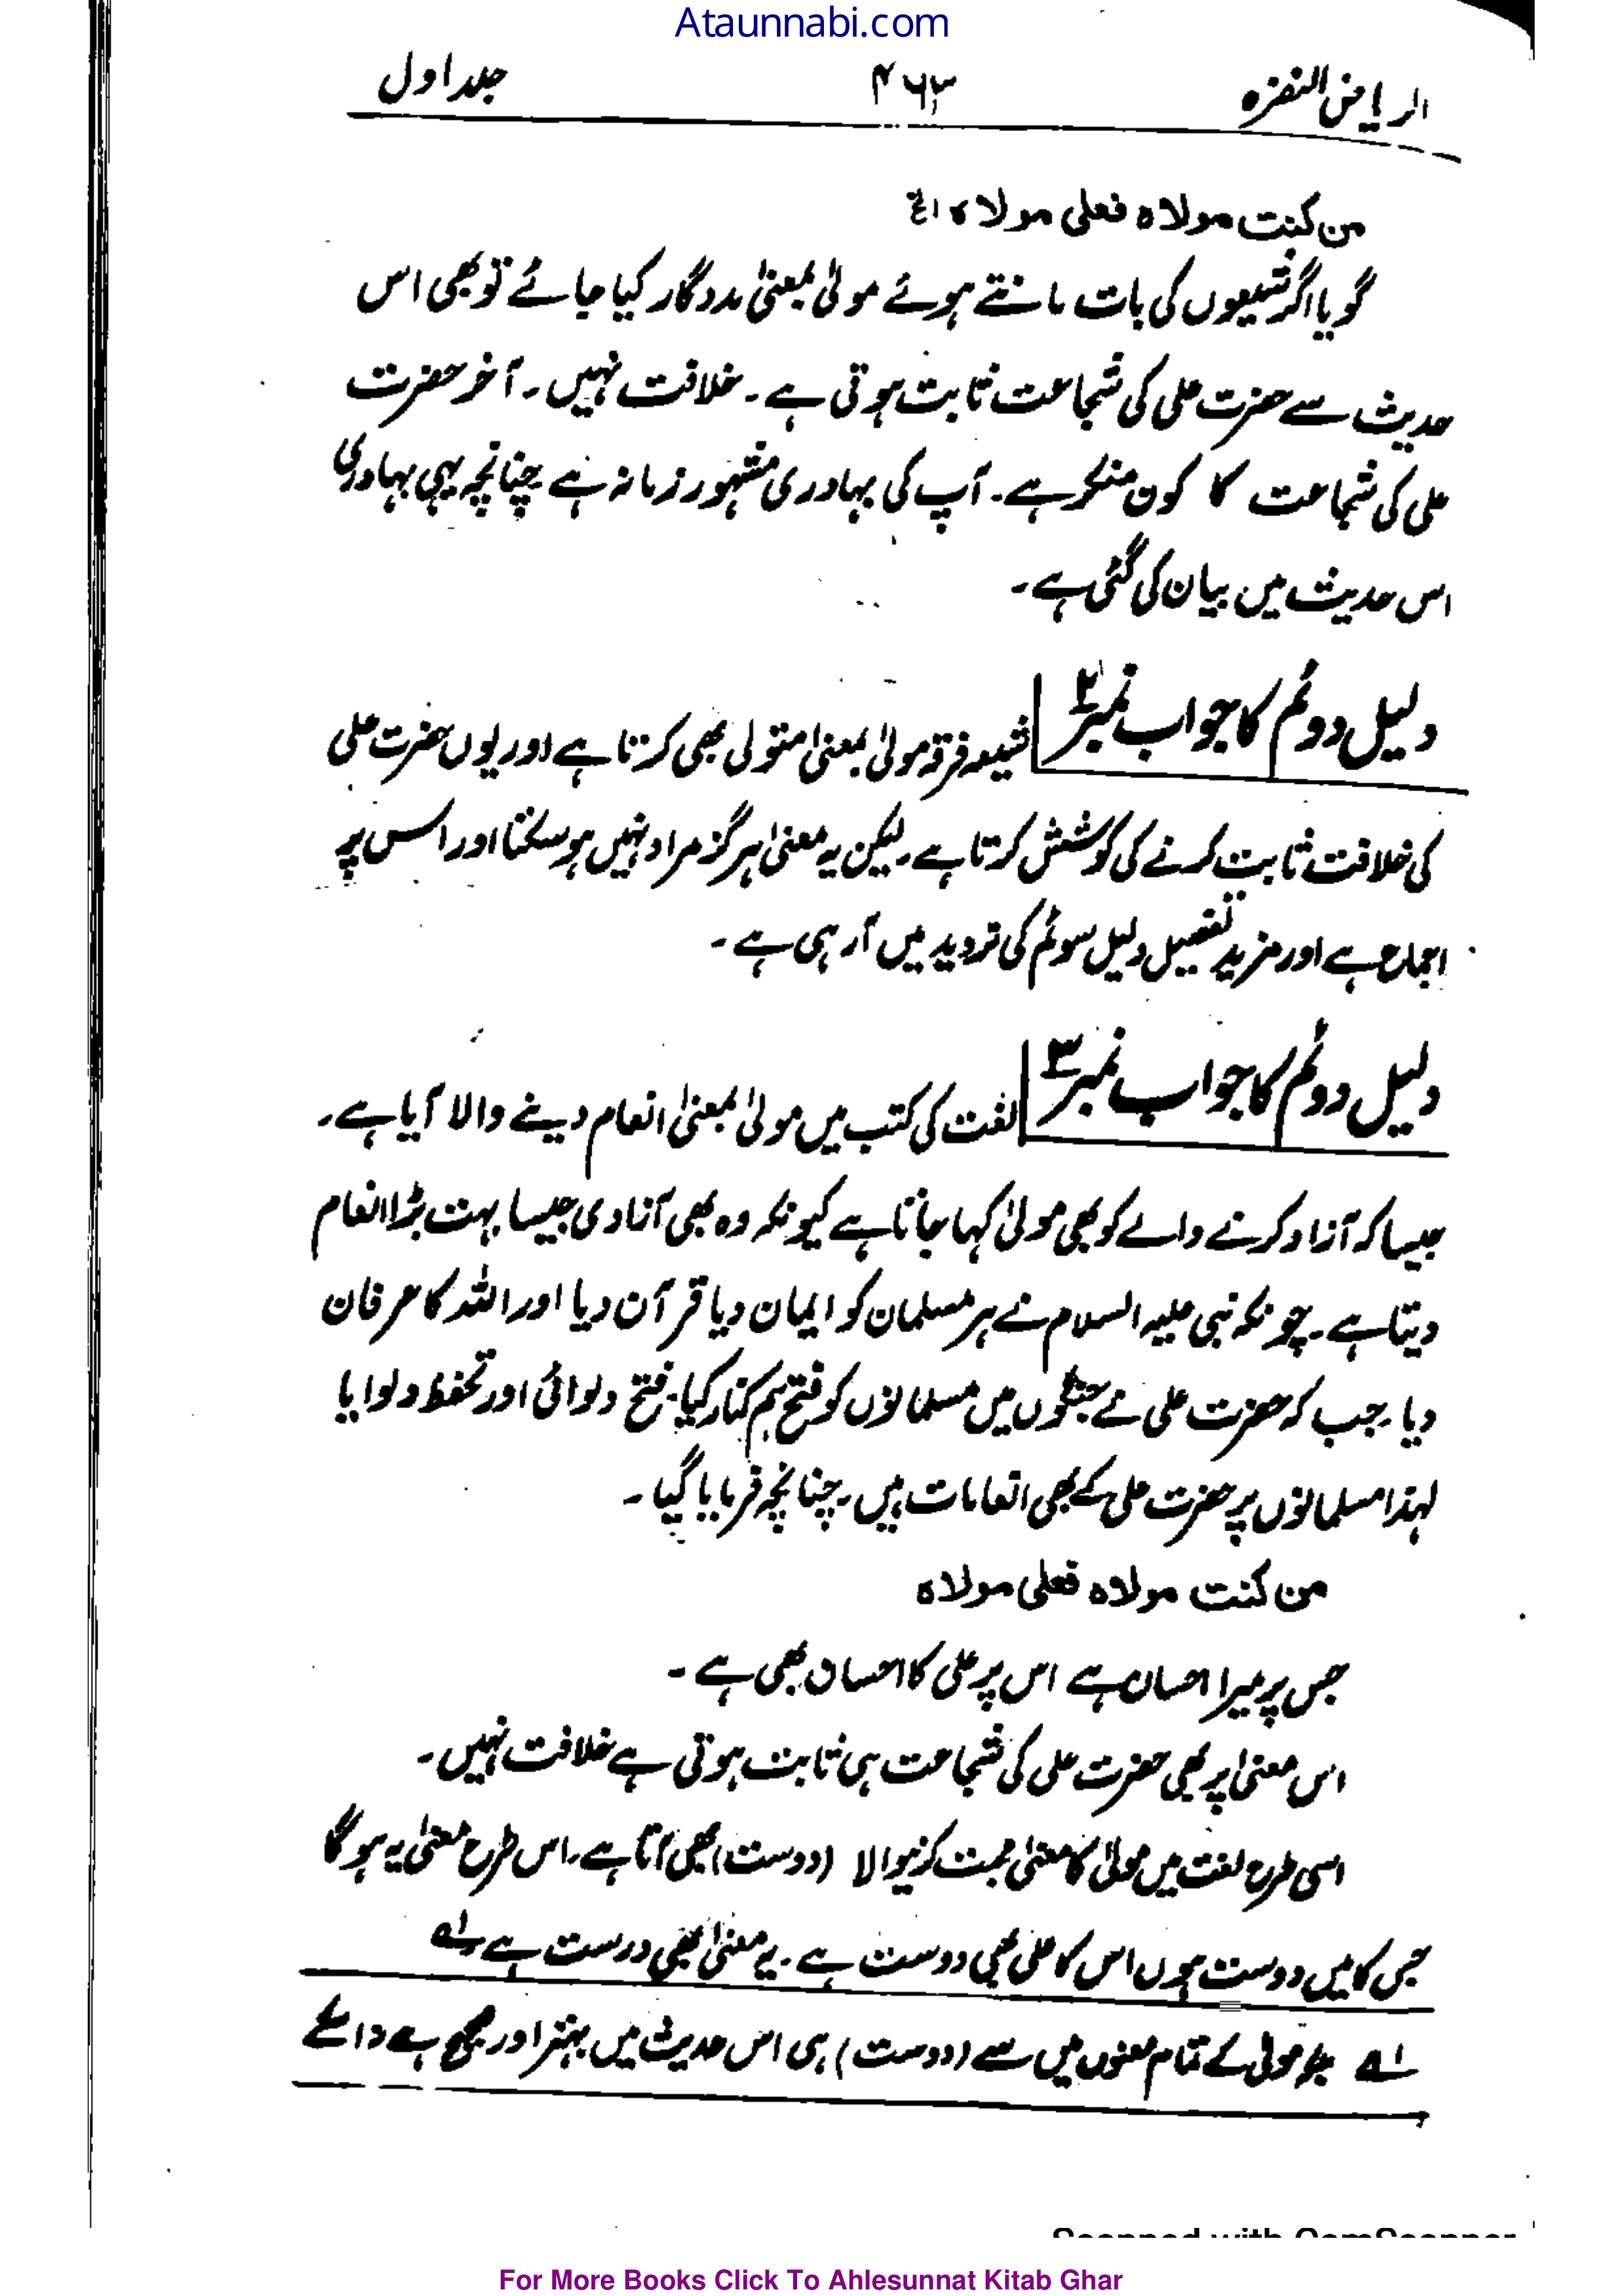 Ataunnabi.com
الریاض النضرہ ۴۶۳ جلد اول
من کنت مولاہ فعلی مولاہ الخ
گویا اگر شیعوں کی بات مانتے ہوئے مولیٰ بمعنیٰ مددگار کیا جائے تو بھی اس
حدیث سے حضرت علی کی شجاعت ثابت ہوتی ہے۔ خلافت نہیں۔ آخر حضرت
علی کی شجاعت کا کون منکر ہے۔ آپ کی بہادری مشہور زمانہ ہے چنانچہ یہی بہادری
اس حدیث میں بیان کی گئی ہے۔
دلیل دوئم کا جواب نمبر ۲ شیعہ فرقہ مولیٰ بمعنیٰ متولی بھی کرتا ہے اور یوں حضرت علی
کی خلافت ثابت کرنے کی کوشش کرتا ہے۔ لیکن یہ معنیٰ ہرگز مراد نہیں ہو سکتا اور اس پر
اجماع ہے اور مزید تفصیل دلیل سوئم کی تردید میں آ رہی ہے۔
دلیل دوئم کا جواب نمبر ۳ لغت کی کتب میں مولیٰ بمعنیٰ انعام دینے والا آیا ہے۔
جیسا کہ آزاد کرنے والے کو بھی مولیٰ کہا جاتا ہے کیونکہ وہ بھی آزادی جیسا بہت بڑا انعام
دیتا ہے۔ چونکہ نبی علیہ السلام نے ہر مسلمان کو ایمان دیا قرآن دیا اور اللہ کا عرفان
دیا۔ جب کہ حضرت علی نے جنگوں میں مسلمانوں کو فتح ہم کنار کیا۔ فتح دلوائی اور تحفظ دلوایا
لہذا مسلمانوں پر حضرت علی کے بھی انعامات ہیں۔ چنانچہ فرمایا گیا۔
من کنت مولاہ فعلی مولاہ
جس پر میرا احسان ہے اس پر علی کا احسان بھی ہے۔
اس معنیٰ پر بھی حضرت علی کی شجاعت ہی ثابت ہوتی ہے خلافت نہیں۔
اسی طرح لغت میں مولیٰ کا معنیٰ محبت کرنیوالا (دوست) بھی آتا ہے۔ اس طرح معنیٰ یہ ہو گا
جس کا میں دوست ہوں اس کا علی بھی دوست ہے۔ یہ معنیٰ بھی درست ہے ؂۱
؂۱ بلکہ مولیٰ کے تمام معنوں میں سے (دوست) ہی اس حدیث میں بہتر اور صحیح ہے
Scanned with CamScanner
For More Books Click To Ahlesunnat Kitab Ghar